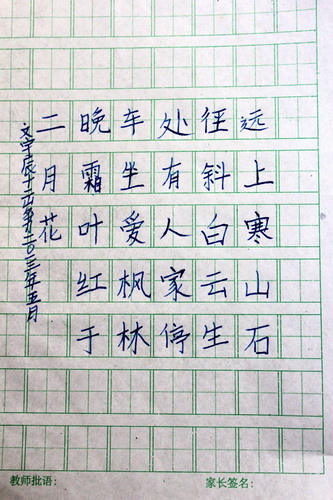 远上寒山石
径斜白云生
处有人家停
车坐爱枫林
晚霜叶红于
二月花
年五月
教师批语：
家长签名：